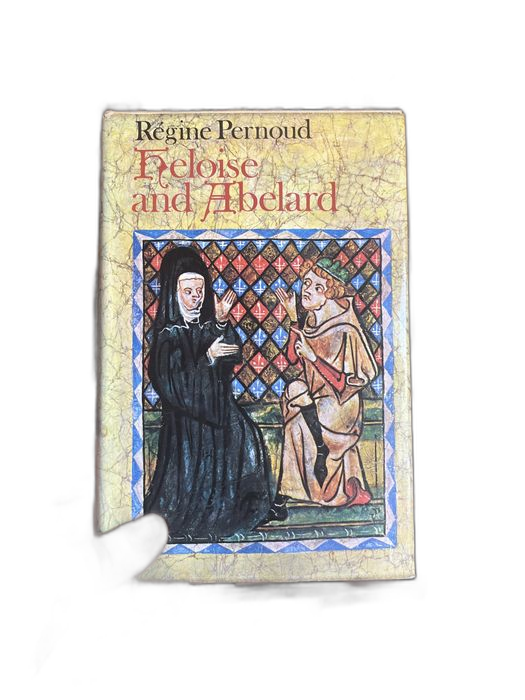 Régine Pernoud
Heloise
and Abelard